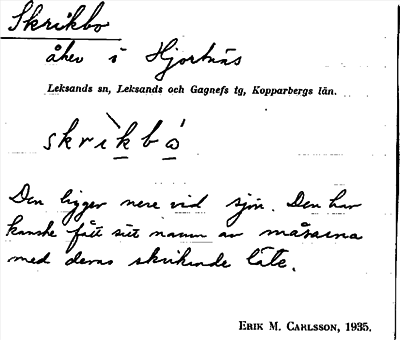 Skrikbo
åker i Hjortnäs
Leksands sn, Leksands och Gagnefs tg, Kopparbergs län.
skrìkbó
Den ligger nere vid sjön. Den har
kanske fått sitt namn av måsarna
med deras skrikande läte.
ERIK M. CARLSSON, 1935.